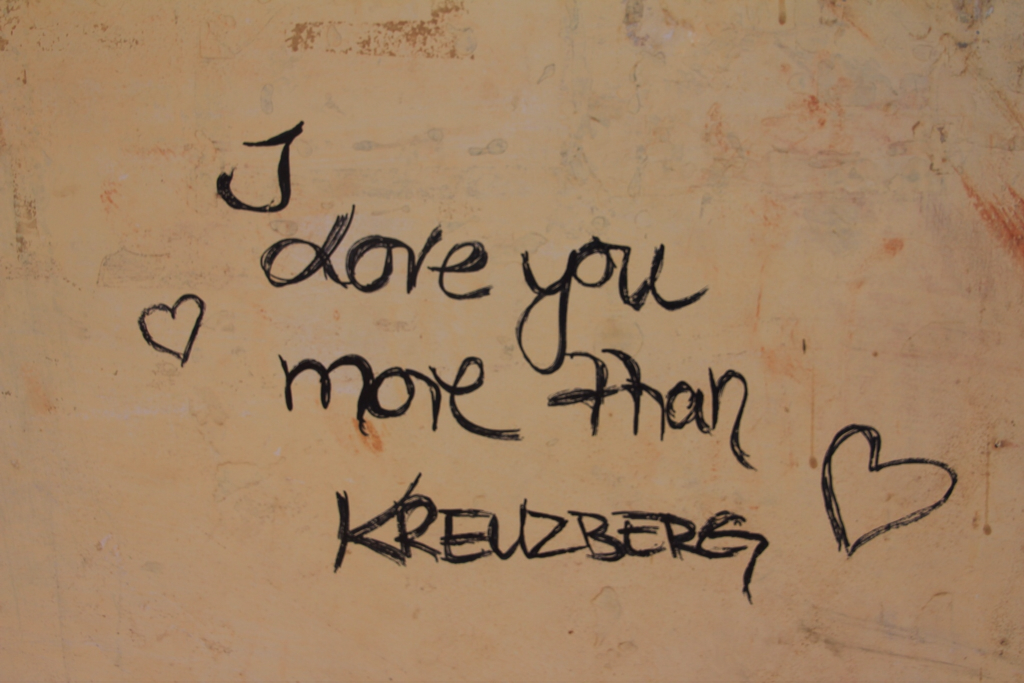 I
Love you
more than
KREUZBERG